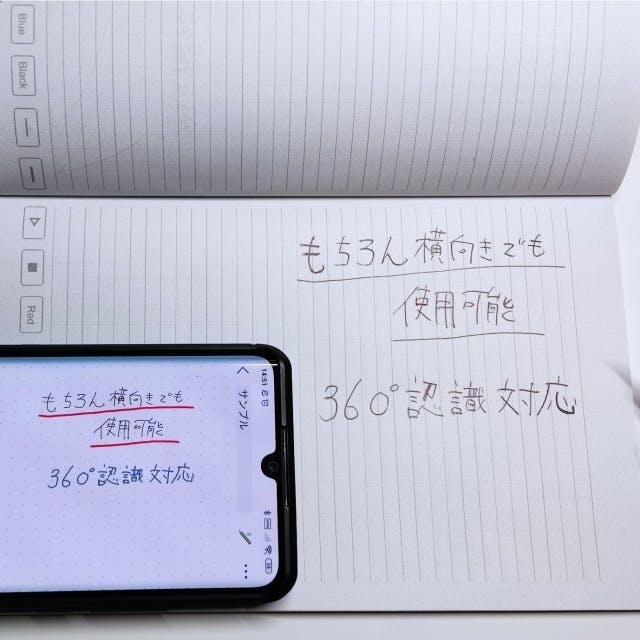 Blue
Black
Red
もちろん横向きでも
使用可能
360°認識対応
14:51
サンプル
もちろん横向きでも
使用可能
360°認識対応